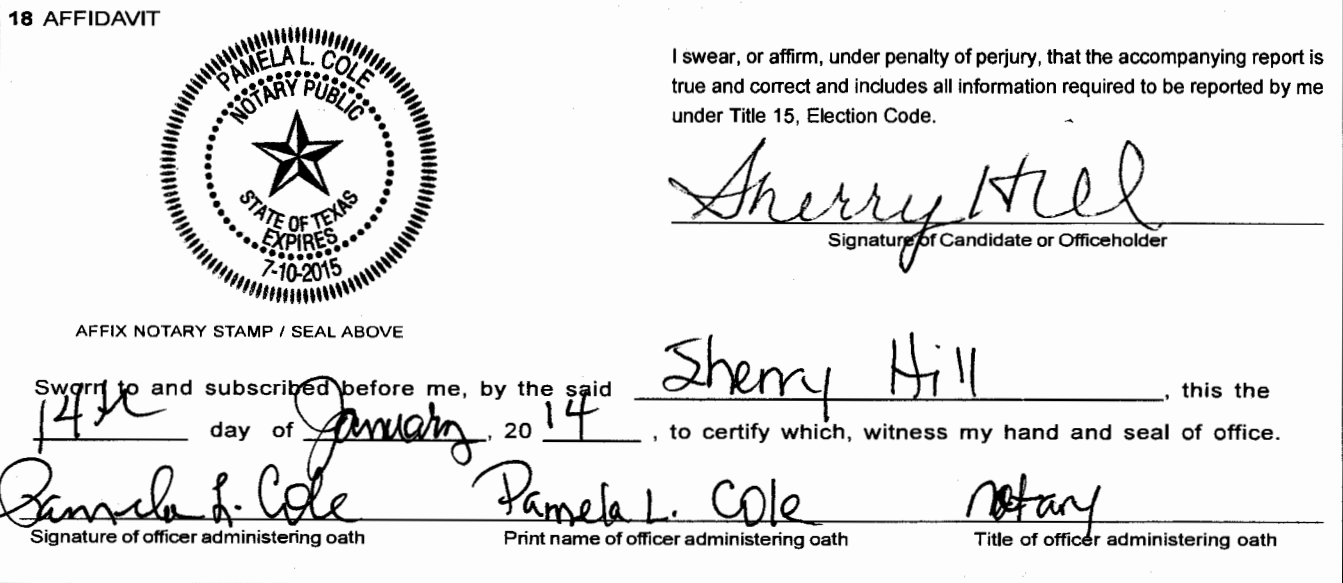 18 AFFIDAVIT
PAMELA L. COLE
NOTARY PUBLIC
STATE OF TEXAS
EXPIRES
7-10-2015
AFFIX NOTARY STAMP / SEAL ABOVE
I swear, or affirm, under penalty of perjury, that the accompanying report is
true and correct and includes all information required to be reported by me
under Title 15, Election Code.
Sherry Hill
Signature of Candidate or Officeholder
Sworn to and subscribed before me, by the said Sherry Hill, this the
14th day of January, 20 14, to certify which, witness my hand and seal of office.
Pamela L. Cole Pamela L. Cole Notary
Signature of officer administering oath Print name of officer administering oath Title of officer administering oath